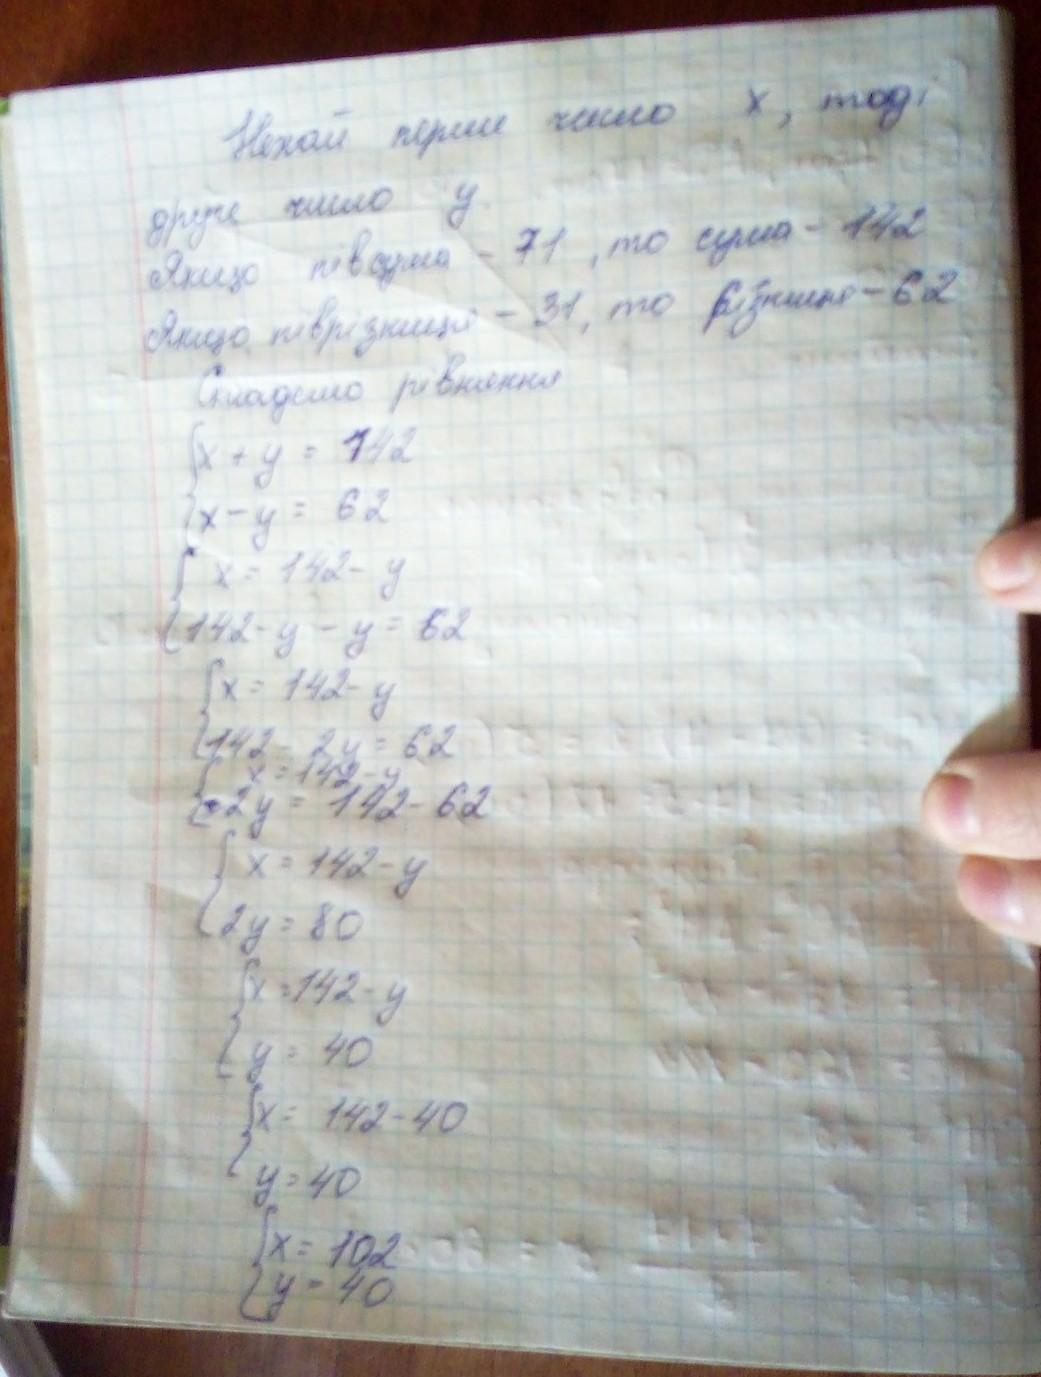 Нехай перше число x, тоді
друге число y
Якщо півсума - 71, то сума - 142
Якщо піврізниця - 31, то різниця - 62
Складемо рівняння
{x + y = 142
{x - y = 62
{x = 142 - y
{142 - y - y = 62
{x = 142 - y
{142 - 2y = 62
{x = 142 - y
{2y = 142 - 62
{x = 142 - y
{2y = 80
{x = 142 - y
{y = 40
{x = 142 - 40
{y = 40
{x = 102
{y = 40